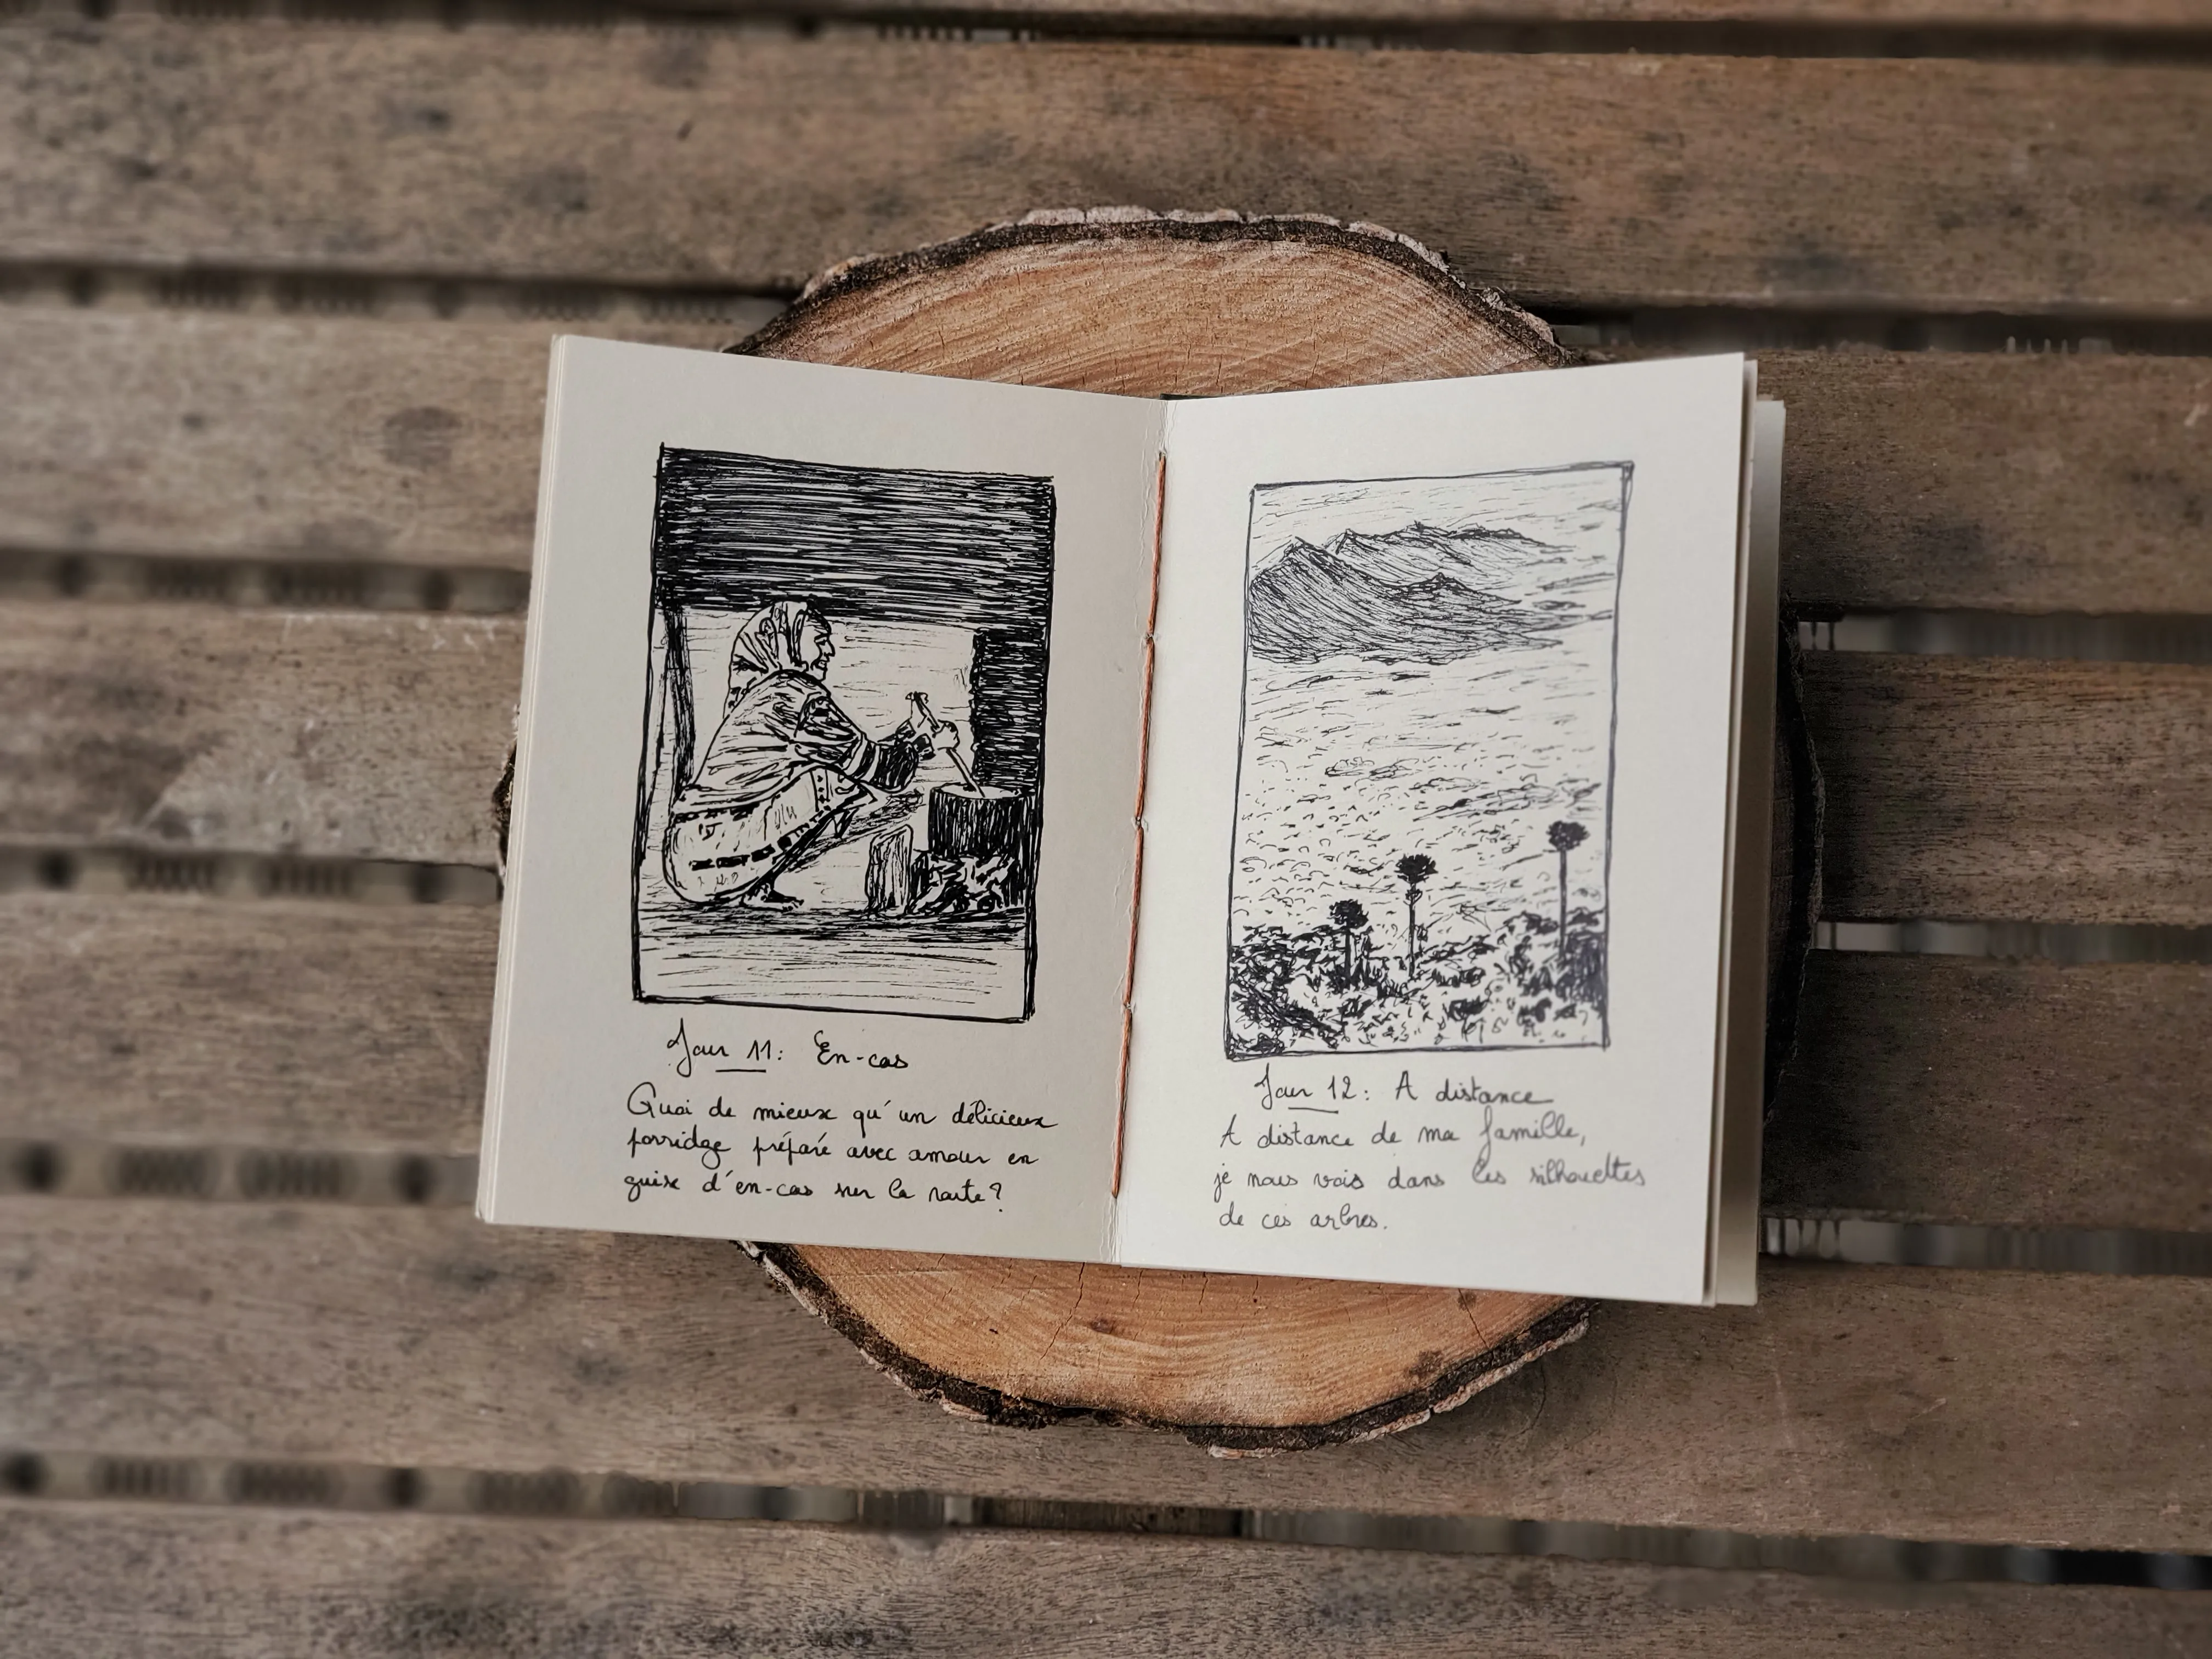 Jour 11: En-cas
Quoi de mieux qu'un délicieux
porridge préparé avec amour en
guise d'en-cas sur la route?
Jour 12: A distance
A distance de ma famille,
je nous vois dans les silhouettes
de ces arbres.